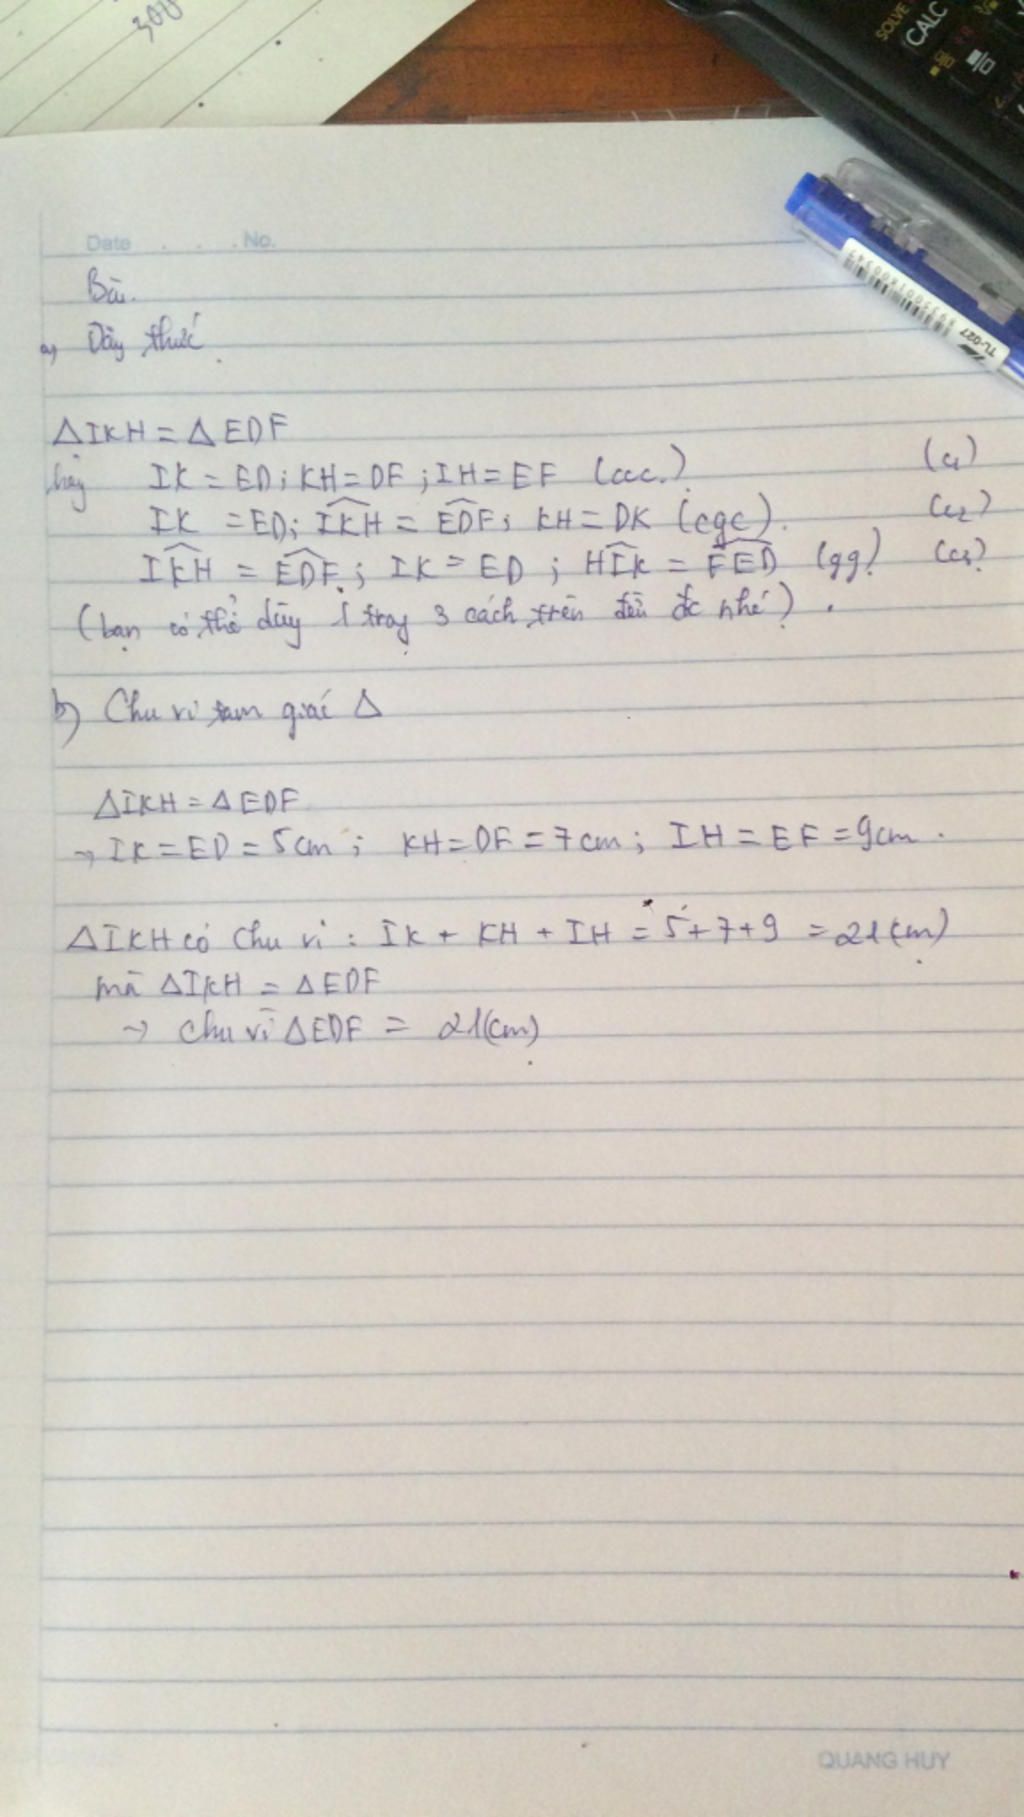 308
SOLVE
CALC
8935001800347
TL-027
Date . . . No.
Bài.
a, Dãy thức
ΔIKH = ΔEDF
hay IK = ED; KH = DF; IH = EF (ccc.) (c1)
IK = ED; \widehat{IKH} = \widehat{EDF}; KH = DK (cgc). (c2)
\widehat{IKH} = \widehat{EDF}; IK = ED; \widehat{HIK} = \widehat{FED} (gg) (c3)
(bạn có thể dùng 1 trog 3 cách trên đều đc nhé).
b) Chu vi tam giác Δ
ΔIKH = ΔEDF
→ IK = ED = 5cm; KH = DF = 7cm; IH = EF = 9cm.
ΔIKH có chu vi: IK + KH + IH = 5+7+9 = 21(cm)
mà ΔIKH = ΔEDF
→ chu vi ΔEDF = 21(cm)
QUANG HUY